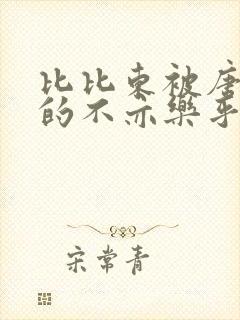 比比东被唐
的不亦乐乎
宋常青